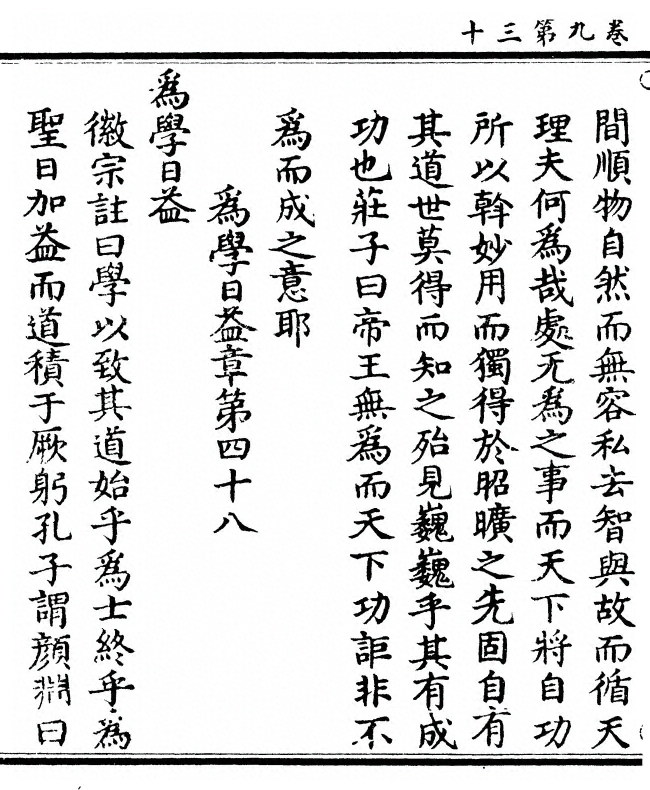 卷九第三十
間順物自然而無容私去智與故而循天
理夫何爲哉處无爲之事而天下將自功
所以斡妙用而獨得於昭曠之先固自有
其道世莫得而知之殆見巍巍乎其有成
功也莊子曰帝王無爲而天下功詎非不
爲而成之意耶
爲學日益章第四十八
爲學日益
徽宗註曰學以致其道始乎爲士終乎爲
聖日加益而道積于厥躬孔子謂顏淵曰